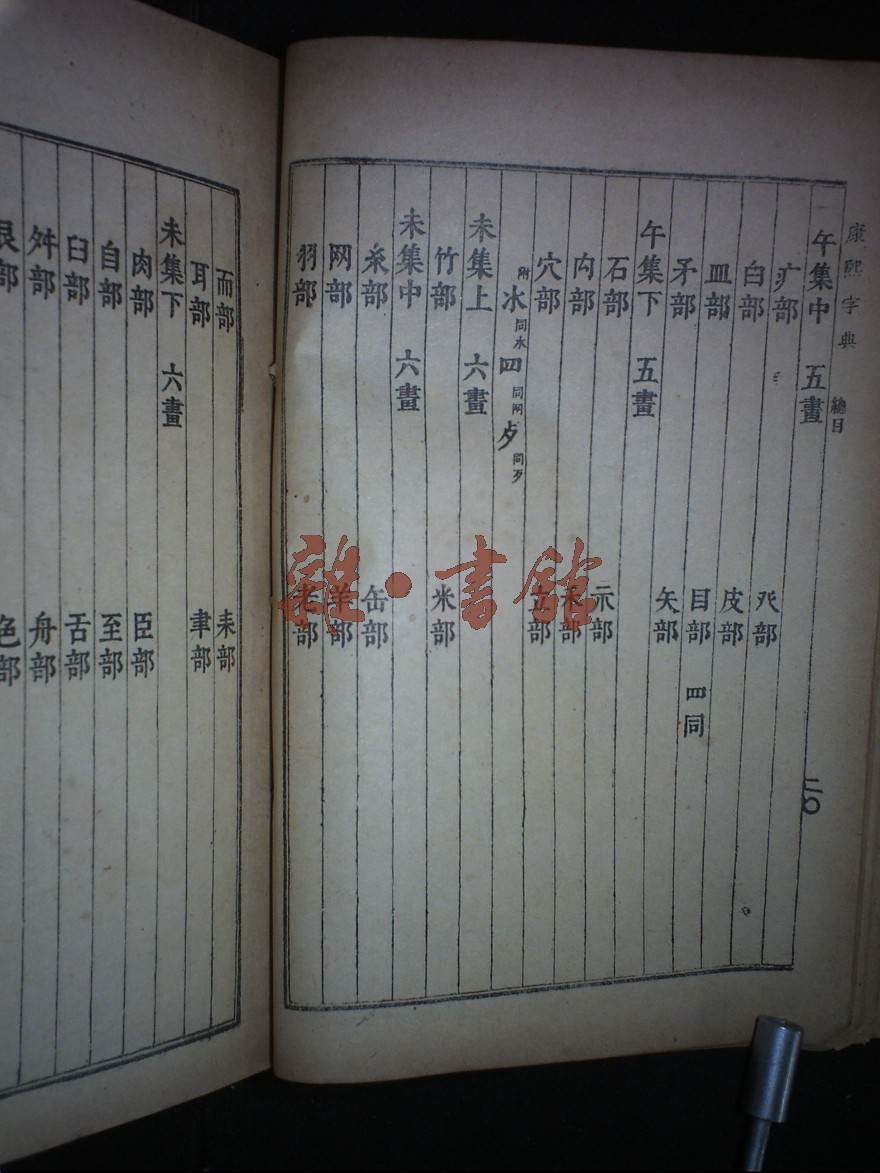 康熙字典 總目 二〇
午集中 五畫
疒部 癶部
白部 皮部
皿部 目部 罒同
矛部 矢部
午集下 五畫
石部 示部
禸部 禾部
穴部 立部
附 氺 同水 罒 同网 歺 同歹
未集上 六畫
竹部 米部
未集中 六畫
糸部 缶部
网部 羊部
羽部 老部
而部 耒部
耳部 聿部
未集下 六畫
肉部 臣部
自部 至部
臼部 舌部
舛部 舟部
艮部 色部
雜·書館